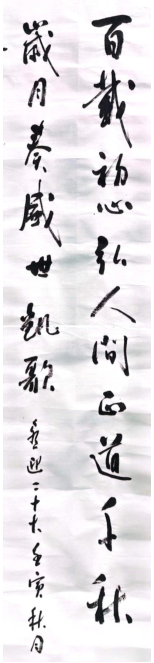 百载初心弘人间正道千秋
歲月奏盛世凱歌
喜迎二十大壬寅秋月